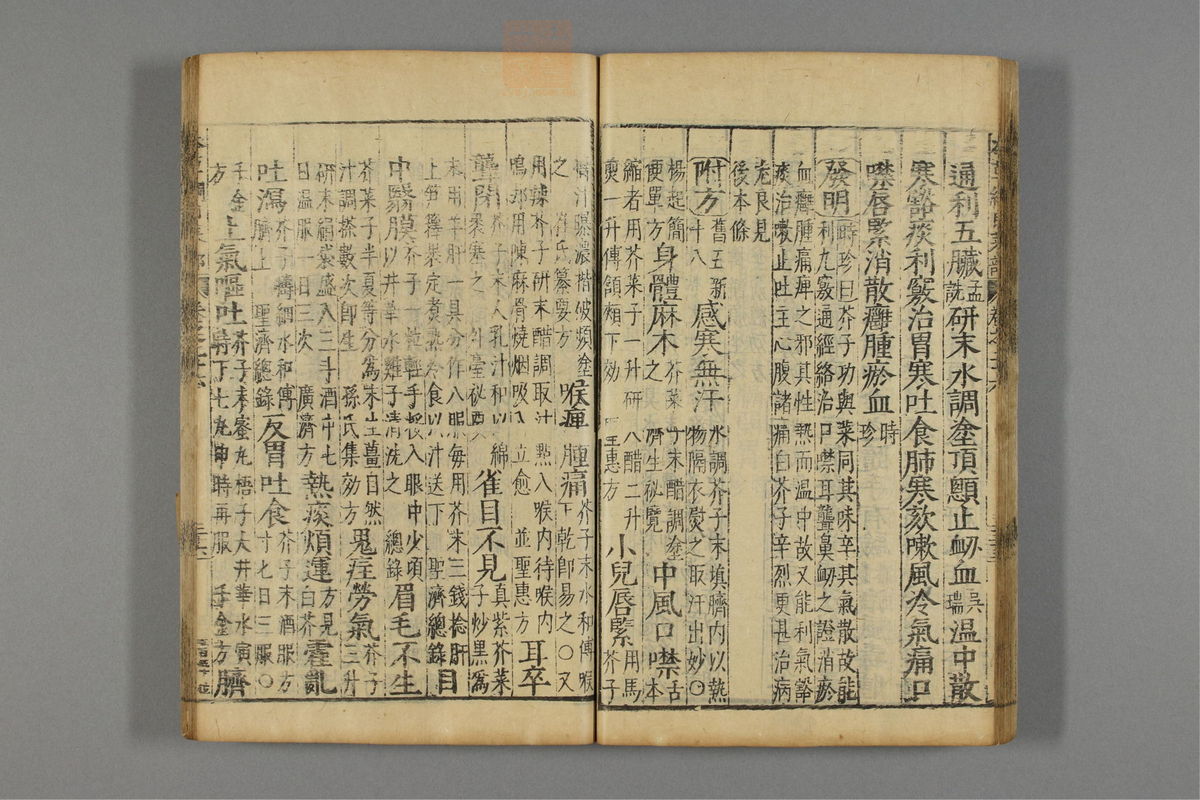 通利五臟孟詵研末水調塗頂顖止衂血吳瑞温中散
寒豁痰利竅治胃寒吐食肺寒欬嗽風冷氣痛口
噤唇緊消散癰腫瘀血時珍
發明時珍曰芥子功與菜同其味辛其氣散故能
利九竅通經絡治口噤耳聾鼻衂之證消瘀
血癰腫痛痺之邪其性熱而温中故又能利氣豁
痰治嗽止吐主心腹諸痛白芥子辛烈更甚治病
尤良見
後本條
附方舊五新十八感寒無汗水調芥子末填臍内以熱
物隔衣熨之取汗出妙○
楊起簡便單方身體麻木芥菜子末醋調塗之
濟生秘覽中風口噤古本
縮者用芥菜子一升研八醋二升
煎一升傳頷頰下効聖惠方小兒唇緊用馬芥子
擣汁曝濃揩破頻塗
之崔氏纂要方喉痺腫痛芥子末水和傅喉
下乾即易之○又
用辣芥子研末醋調取汁點入喉内待喉内
鳴却用陳麻骨燒烟吸入立愈並聖惠方耳卒
聾閉芥子末人乳汁和以綿
裹塞之外臺秘要雀目不見真紫芥菜子炒黑為
末用羊肝一具分作八服每用芥末三錢捻肝
上笋籜裹定煮熟冷食以汁送下聖濟總錄目
中翳膜芥子一粒輕手挼入眼中少頃
以井華水雞子清洗之總錄眉毛不生
芥菜子半夏等分為末生薑自然
汁調搽數次即生孫氏集効方鬼疰勞氣芥子三升
研末絹袋盛入三斗酒中七
日温服一日三次廣濟方熱痰煩運方見白芥霍亂
吐瀉芥子擣細水和傅
臍上聖濟總錄反胃吐食芥子末酒服方寸匕日三服○
千金方上氣嘔吐芥子末蜜丸梧子大井華水寅
時下七丸申時再服千金方臍